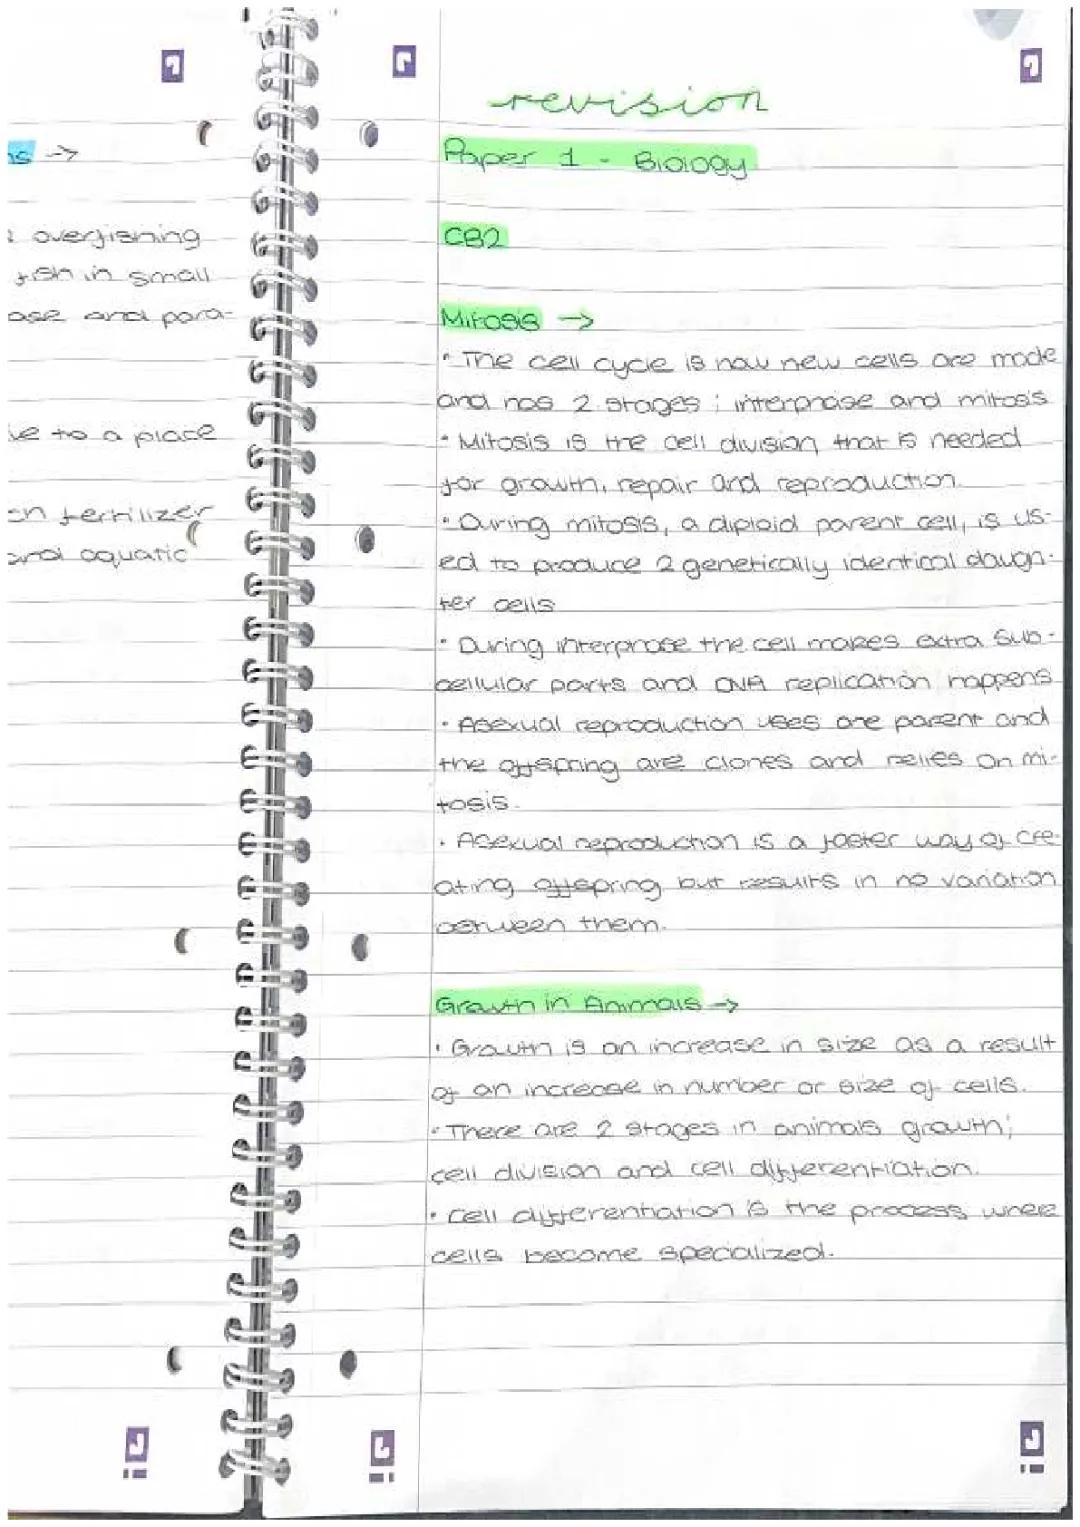 ns →
overfishing
fish in small
ase and para-
ie to a place
en fertilizer
and aquatic
revision
Paper 1 - Biology
CB2
Mitosis →
• The cell cycle is how new cells are made
and has 2 stages ; interphase and mitosis
• Mitosis is the cell division that is needed
for growth, repair and reproduction.
• During mitosis, a diploid parent cell, is us-
ed to produce 2 genetically identical daugh-
ter cells
• During interphase the cell makes extra sub-
cellular parts and DNA replication happens
• Asexual reproduction uses one parent and
the offspring are clones and relies on mi-
tosis.
• Asexual reproduction is a faster way of cre-
ating offspring but results in no variation
between them.
Growth in Animals →
• Growth is an increase in size as a result
of an increase in number or size of cells.
• There are 2 stages in animals growth;
cell division and cell differentiation.
• Cell differentiation is the process where
cells become specialized.